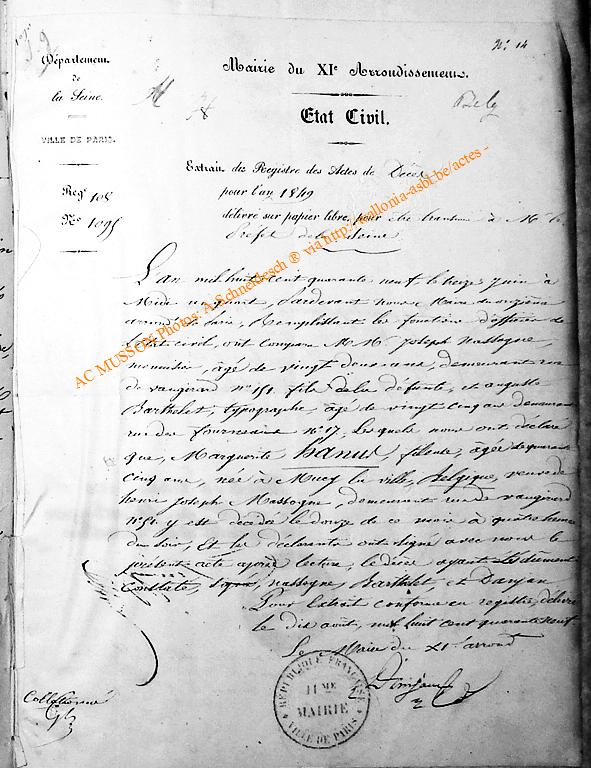 Nº 14
Département
de
la Seine.
VILLE DE PARIS.
Reg. 108
Nº 1095
Mairie du XIe Arrondissement.
Etat Civil.
Extrait des Registres des Actes de Décès
pour l'an 1849
délivré sur papier libre, pour être transmis à Mr le
Préfet de la Seine
L'an mil huit cent quarante neuf, le treize Juin à
Midi un quart, Pardevant nous Maire du onzième
arrond. de Paris, Remplissant les fonctions d'officier de
l'état civil, ont comparu M.M. Joseph Nassogne,
menuisier, âgé de vingt deux ans, demeurant rue
de vaugirard nº 151, fils de la défunte, et auguste
Barthelet, typographe, âgé de vingt cinq ans demeurant
rue du four nº 17, Lesquels nous ont déclaré
que, Marguerite hanus, fileuse, âgée de quarante
cinq ans, née à Mucy la ville, Belgique, veuve de
henri Joseph Nassogne, demeurant rue de vaugirard
nº 151. y est décédée le douze de ce mois à quatre heures
du soir, Et les déclarants ont signé avec nous le
présent acte après lecture, le décès ayant été dûment
Constaté, signé, Nassogne, Barthelet, et Danjan
Pour Extrait conforme au registre, délivré
le dix août, mil huit cent quarante neuf
Le Maire du XIe arrond.
Collationné
RÉPUBLIQUE FRANÇAISE
11ME
MAIRIE
VILLE DE PARIS
AC MUSSON Photos: A.Schneidesch ® via http://wallonia-asbl.be/actes -